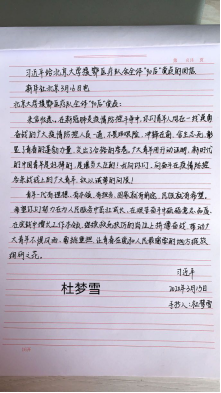 习近平给北京大学援鄂医疗队全体“90后”党员的回信
新华社北京3月16日电
北京大学援鄂医疗队全体“90后”党员:
来信收悉。在新冠肺炎疫情防控斗争中,你们青年人同在一线英勇
奋战的广大疫情防控人员一道,不畏艰险、冲锋在前、舍生忘死,彰
显了青春的蓬勃力量,交出了合格答卷。广大青年用行动证明,新时代
的中国青年是好样的,是堪当大任的!我向你们、向奋斗在疫情防控
各条战线上的广大青年,致以诚挚的问候!
青年一代有理想、有本领、有担当,国家就有前途,民族就有希望。
希望你们努力在为人民服务中茁壮成长、在艰苦奋斗中砥砺意志品质、
在实践中增长工作本领,继续在救死扶伤的岗位上拼搏奋战,带动广
大青年不惧风雨、勇挑重担,让青春在党和人民最需要的地方绽放
绚丽之花。
习近平
2020年3月15日
杜梦雪
手抄人:杜梦雪